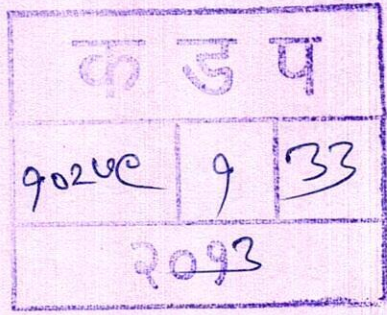 क ड प
१०२५९ १ ३३
२०१३